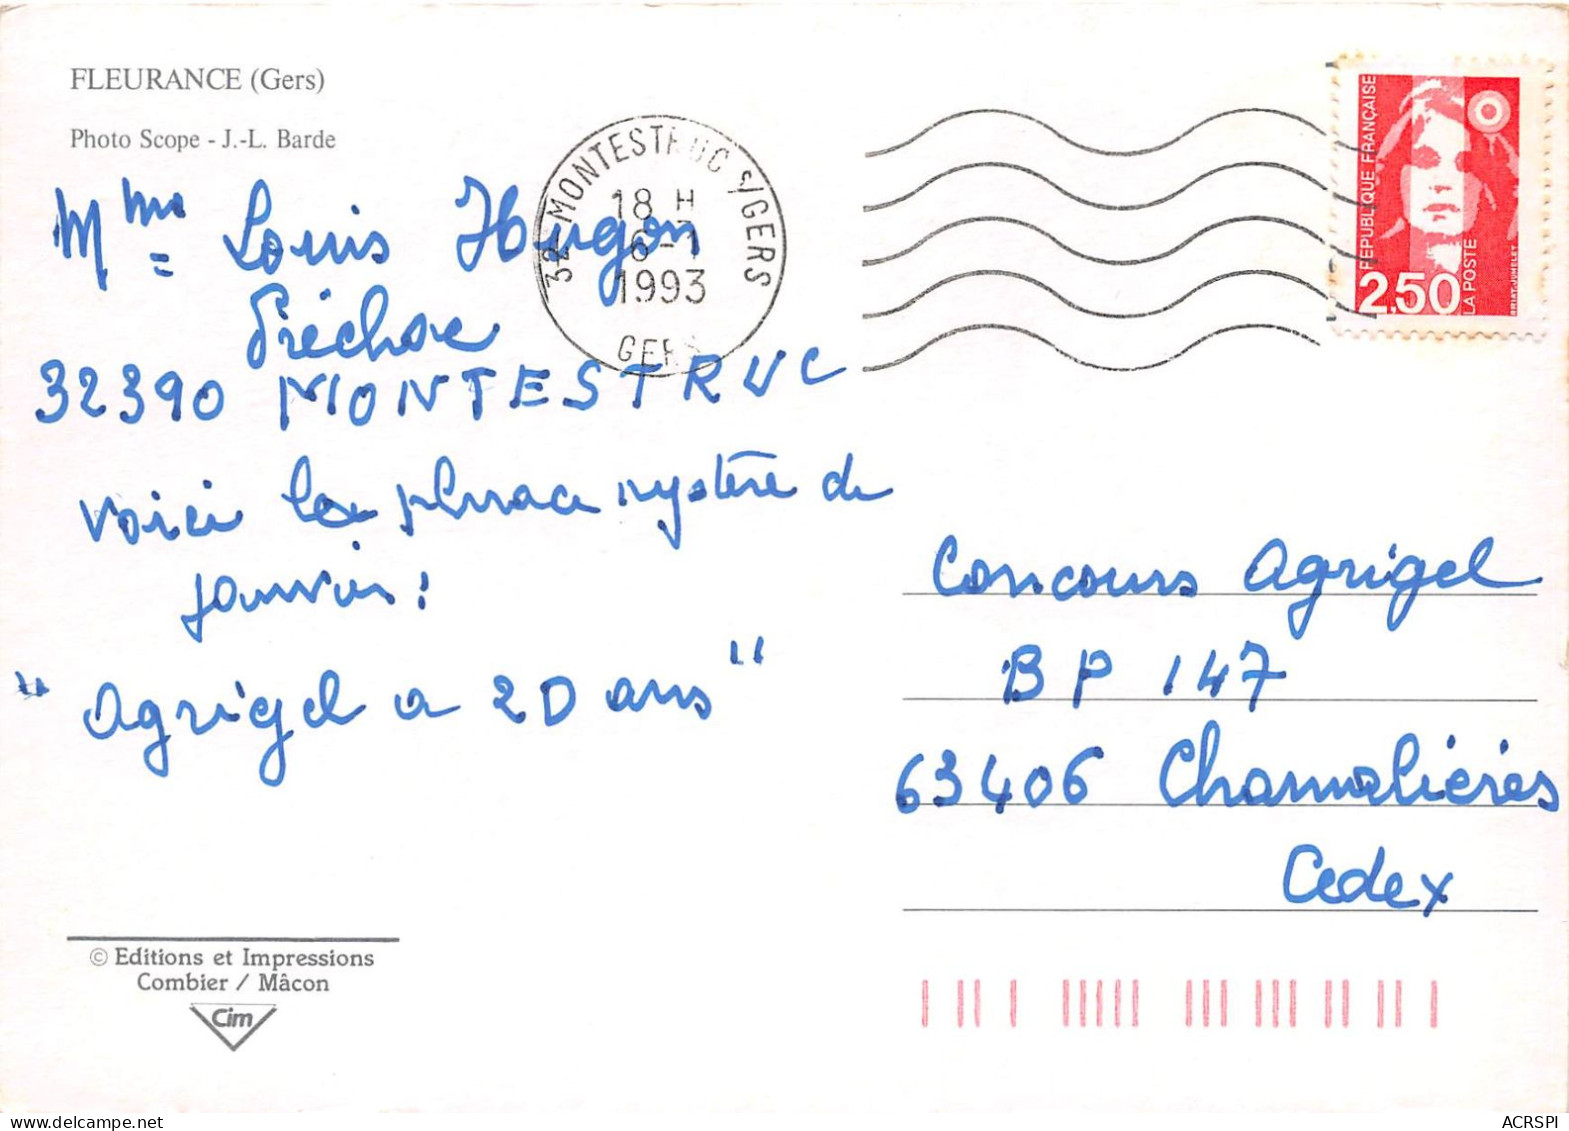 FLEURANCE (Gers)
Photo Scope - J.-L. Barde
Mme Louis Hugon
Préchac
32390 MONTESTRUC
voici la phrase mystère de
janvier :
"agrigel a 20 ans"
© Editions et Impressions
Combier / Mâcon
Cim
32 MONTESTRUC S/GERS
18 H
6-1
1993
GERS
REPUBLIQUE FRANÇAISE
2,50
LA POSTE
BRIAT-JUMELET
Concours Agrigel
BP 147
63406 Chamalières
Cedex
ACRSPI